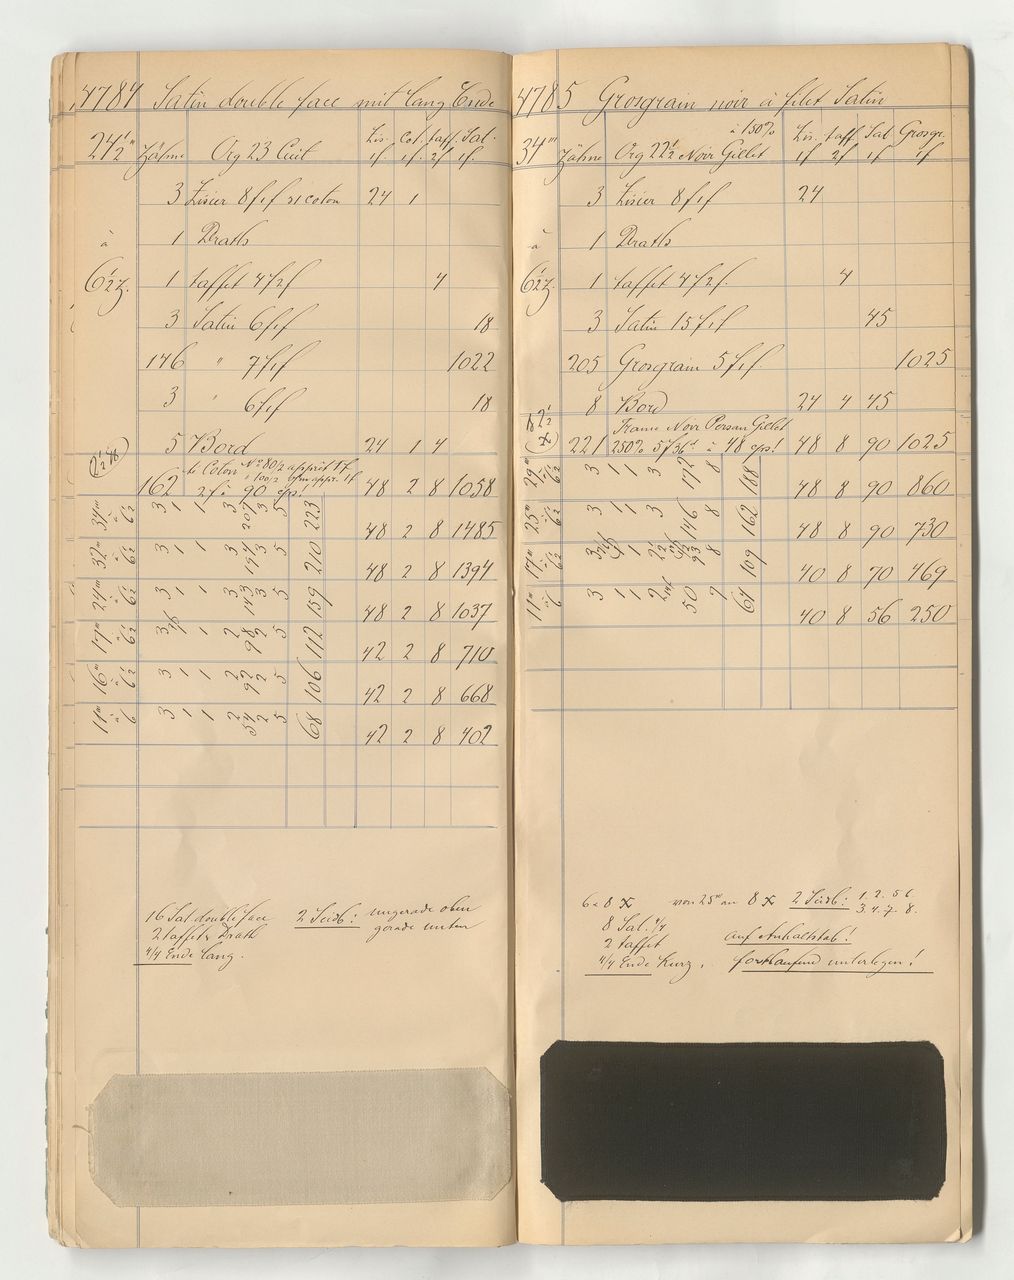 4784 Satin double face mit lang Ende
24½''' Zähne Org 23 Cuit Lis. 1f. Cot. 1f. taff. 2f Sat. 1f.
3 Lisier 8f 1f si coton 24 1
à 1 Draths
6½ Z. 1 taffet 4f 2f 4
3 Satin 6f 1f 18
146 " 7f 1f 1022
3 " 6f 1f 18
5 Bord 24 1 4
2½
Coton Nº 80/2 apprêt 1f
" 100/2 appr. 1f
162 2f à 90 cps! 48 2 8 1058
34''' à 6½ 3 1 1 3 207 3 5 223 48 2 8 1485
32''' à 6½ 3 1 1 3 194 3 5 210 48 2 8 1394
24''' à 6½ 3 1 1 3 143 3 5 159 48 2 8 1037
17''' à 6½ 3 1 1 2 98 2 5 112 42 2 8 710
16''' à 6½ 3 1 1 2 92 2 5 106 42 2 8 668
11''' à 6 3 1 1 2 54 2 5 68 42 2 8 402
16 Sat. double face 2 Seidb: ungerade oben
2 taffet & Drath gerade unten
4/4 Ende lang.
4785 Grosgrain noir à filet Satin
34''' Zähne Org 22½ Noir Gillet à 150% Lis. 1f taff 2f Sat 1f Grosgr. 1f
3 Lisier 8f 1f 24
à 1 Draths
6½ Z. 1 taffet 4f 2f. 4
3 Satin 15f 1f 45
205 Grosgrain 5f 1f. 1025
8 Bord 24 4 45
Trame Noir Persan Gillet
221 250% 5f 36d à 48 cps! 48 8 90 1025
29''' à 6½ 3 1 1 3 172 8 188 48 8 90 860
25''' à 6½ 3 1 1 3 146 8 162 48 8 90 730
17''' à 6½ 3 1 2 93 8 109 40 8 70 469
11''' à 6 3 1 1 2 50 7 64 40 8 56 250
6 & 8 X von 25''' an 8 X 2 Seidb: 1. 2. 5 6.
3. 4. 7. 8.
8 Sat. 4/4
2 taffet auf Anhaltstab!
4/4 Ende Kurz. fortlaufend unterlegen!